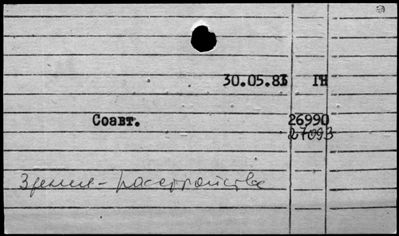 30.05.83 ГН
Соавт. 26990
27093
Зрения - расстройства